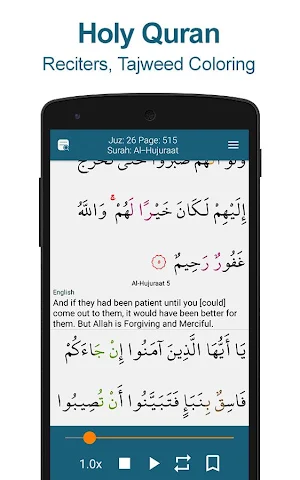 Holy Quran
Reciters, Tajweed Coloring
Juz: 26 Page: 515
Surah: Al-Hujuraat
وَلَوْ أَنَّهُمْ صَبَرُوا حَتَّىٰ تَخْرُجَ
إِلَيْهِمْ لَكَانَ خَيْرًا لَهُمْ ۚ وَاللَّهُ
غَفُورٌ رَحِيمٌ
Al-Hujuraat 5
English
And if they had been patient until you [could]
come out to them, it would have been better for
them. But Allah is Forgiving and Merciful.
يَا أَيُّهَا الَّذِينَ آمَنُوا إِنْ جَاءَكُمْ
فَاسِقٌ بِنَبَإٍ فَتَبَيَّنُوا أَنْ تُصِيبُوا
1.0x